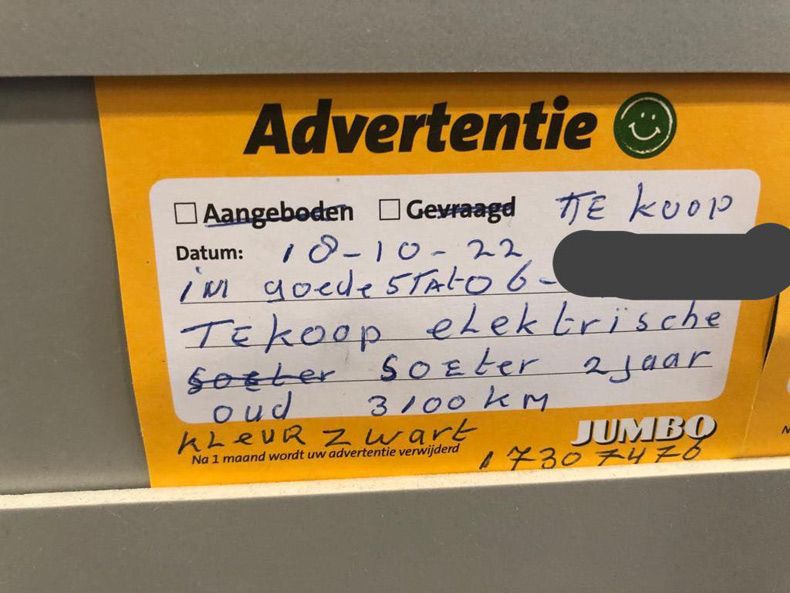 Advertentie
Aangeboden Gevraagd TE KOOP
Datum: 18-10-22
in goede STAtO 6-
TEkoop elektrische
soeter soeter 2 jaar
oud 3100 KM
KLEUR Zwart JUMBO
Na 1 maand wordt uw advertentie verwijderd
17307476